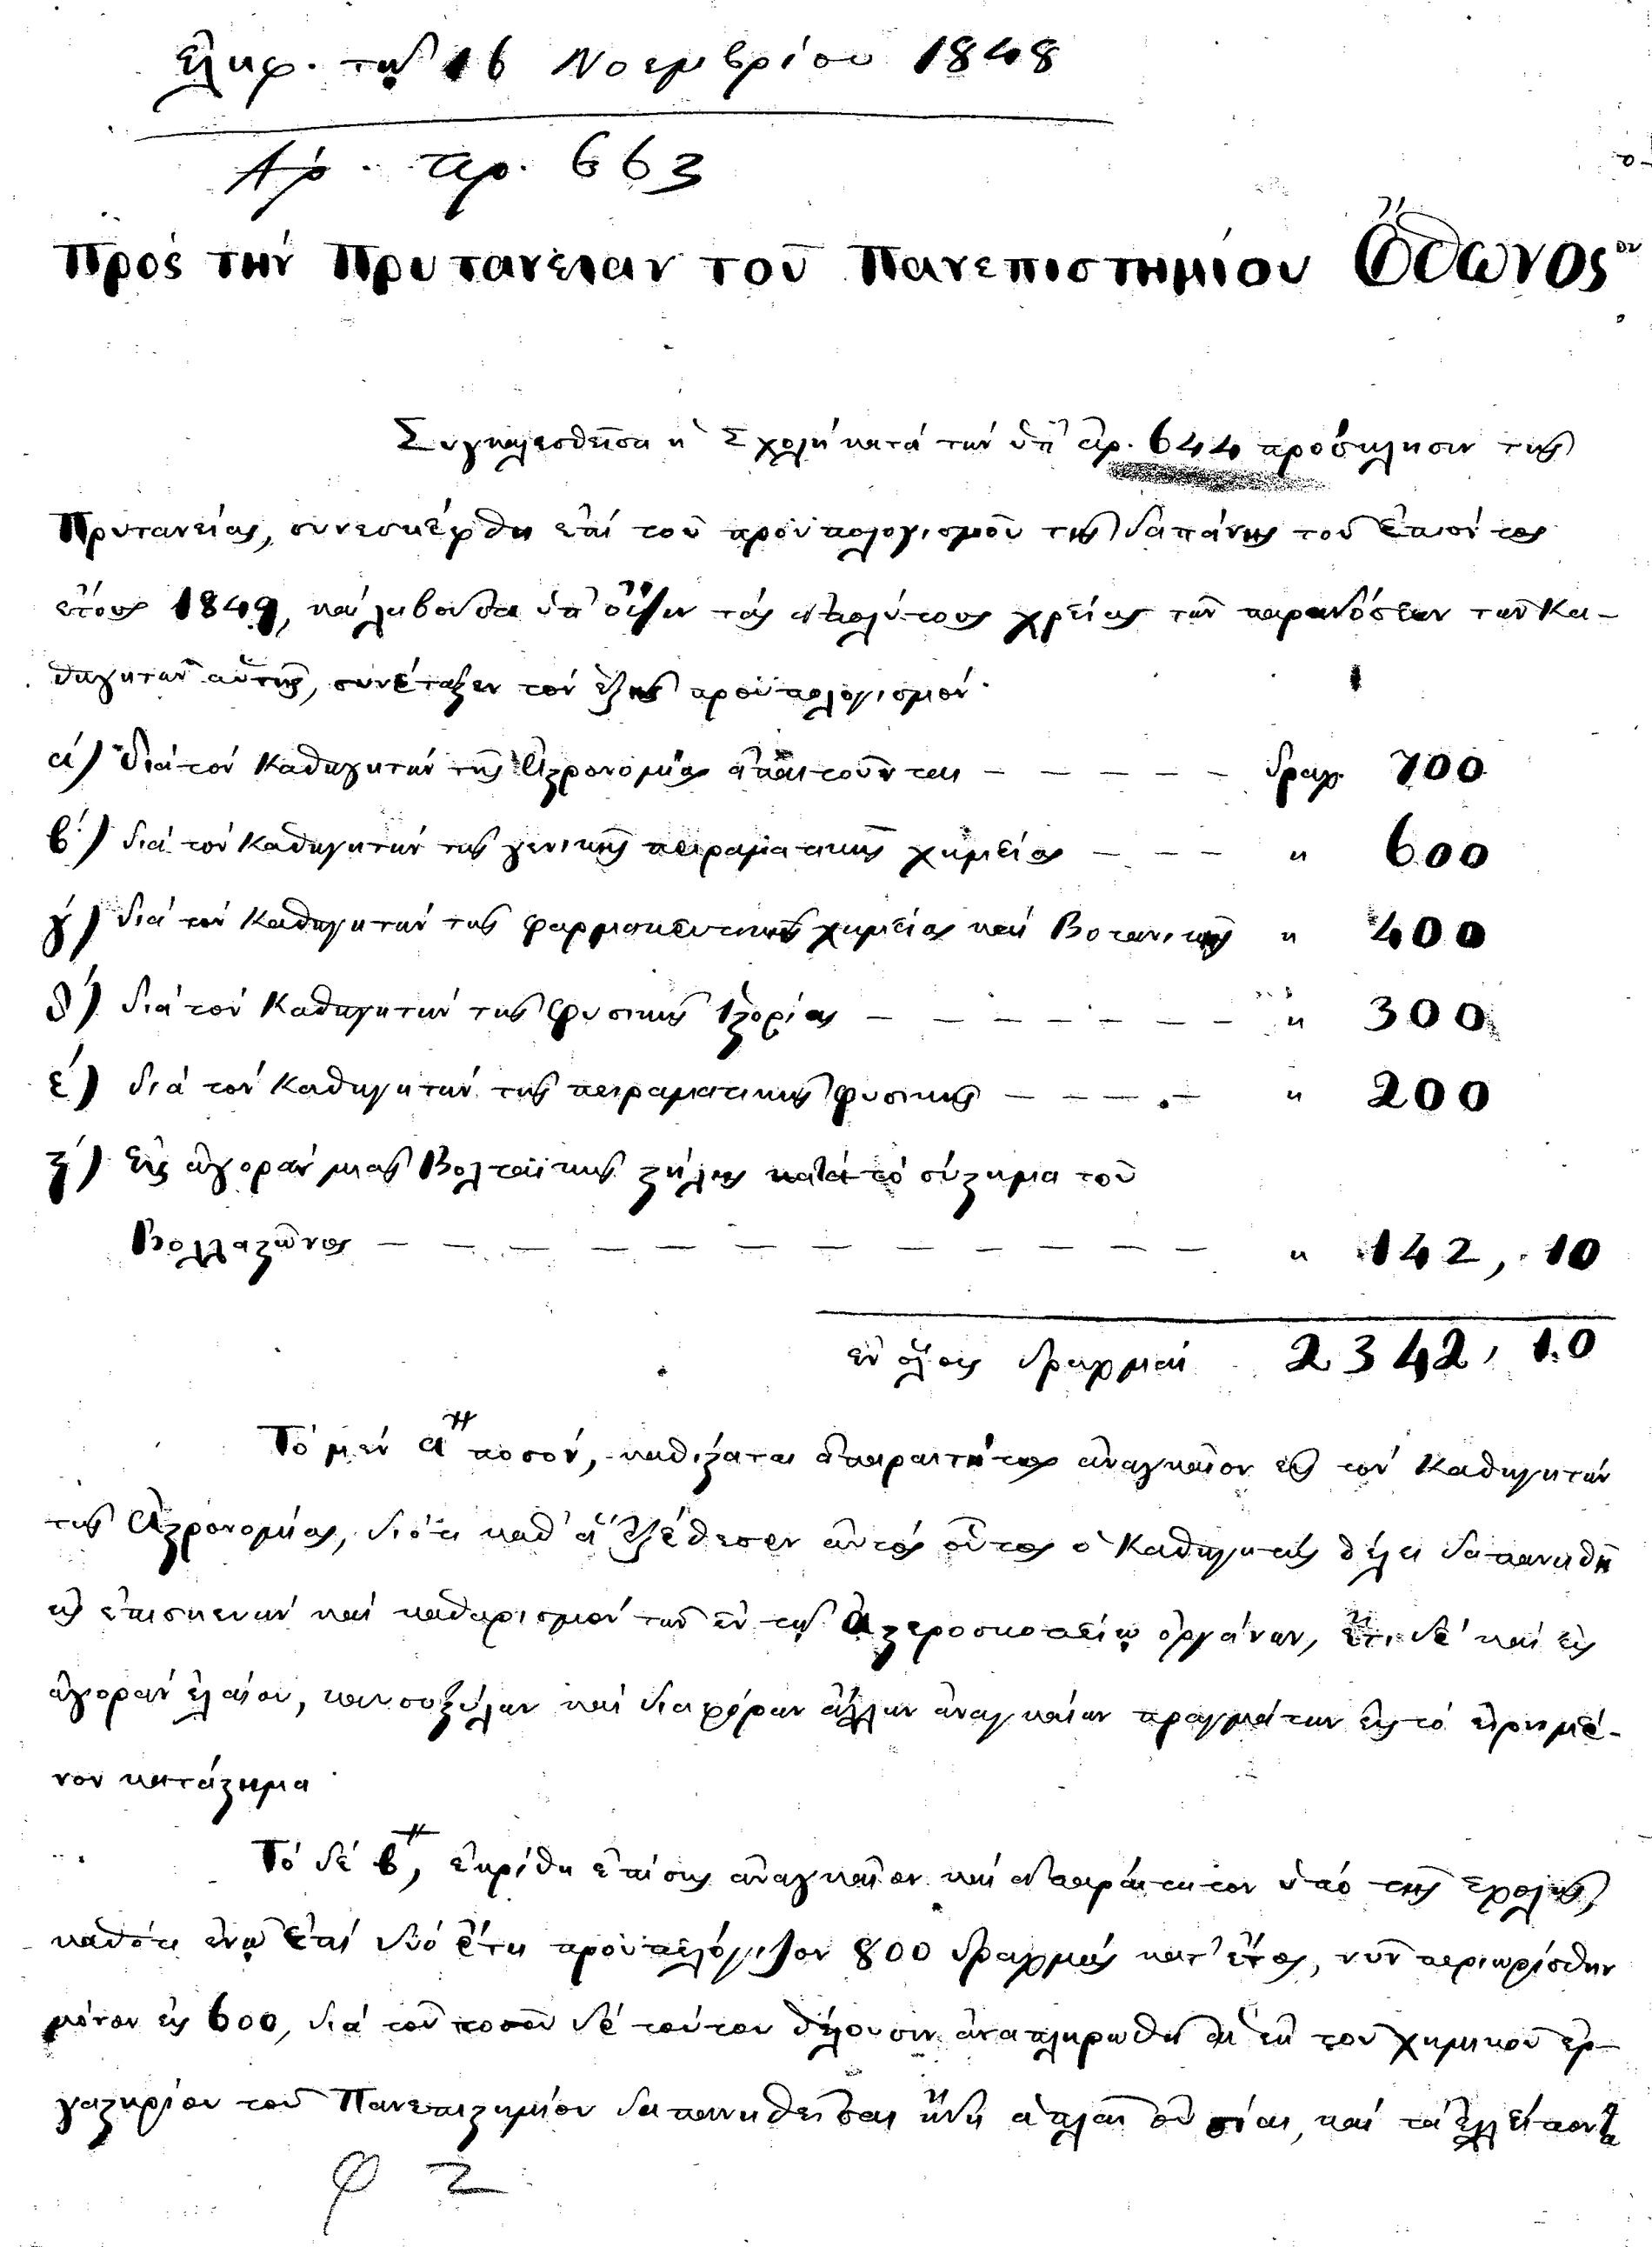 ἐλήφ. τῇ 16 Νοεμβρίου 1848
Ἀρ. πρ. 663
Πρὸς τὴν Πρυτανείαν τοῦ Πανεπιστημίου Ὄθωνος
Συγκληθεῖσα ἡ Σχολὴ κατὰ τὴν ὑπ' ἀρ. 644 πρόσκλησιν τῆς
Πρυτανείας, συνεσκέφθη ἐπὶ τοῦ προϋπολογισμοῦ τῆς δαπάνης τοῦ ἐπιόντος
ἔτους 1849, καὶ λαβοῦσα ὑπ' ὄψιν τὰς ἀπολύτους χρείας τῶν παραδόσεων τῶν Κα-
θηγητῶν αὐτῆς, συνέταξεν τὸν ἑξῆς προϋπολογισμόν·
α') διὰ τὸν Καθηγητὴν τῆς Ἀστρονομίας ἀπαιτοῦνται - - - - - δραχ. 700
β') διὰ τὸν Καθηγητὴν τῆς γενικῆς πειραματικῆς χημείας - - - " 600
γ') διὰ τὸν Καθηγητὴν τῆς φαρμακευτικῆς χημείας καὶ Βοτανικῆς " 400
δ') διὰ τὸν Καθηγητὴν τῆς φυσικῆς Ἱστορίας - - - - - - - - " 300
ε') διὰ τὸν Καθηγητὴν τῆς πειραματικῆς φυσικῆς - - - - - " 200
ϛ') Εἰς ἀγορὰν μιᾶς Βολταϊκῆς στήλης κατὰ τὸ σύστημα τοῦ
- - - - - - - - - - - - - " 142, 10
ἐν ὅλοις δραχμαὶ 2342, 10
Τὸ μὲν α ποσόν, καθίσταται ἀπαραιτήτως ἀναγκαῖον εἰς τὸν Καθηγητὴν
τῆς Ἀστρονομίας, διότι καθ' ἃ ἐξέθεσεν αὐτὸς οὗτος ὁ Καθηγητὴς θέλει δαπανηθῆ
εἰς ἐπισκευὴν καὶ καθαρισμὸν τῶν ἐν τῷ Ἀστεροσκοπείῳ ὀργάνων, ἔτι δὲ καὶ εἰς
ἀγορὰν ἐλαίου, καυσοξύλων καὶ διαφόρων ἄλλων ἀναγκαίων πραγμάτων εἰς τὸ εἰρημέ-
νον κατάστημα·
Τὸ δὲ β, ἐκρίθη ἐπίσης ἀναγκαῖον καὶ ἀπαραίτητον ὑπὸ τῆς Σχολῆς,
καθότι ἐνῷ ἐπὶ δύο ἔτη προϋπελόγιζον 800 δραχμὰς κατ' ἔτος, νῦν περιωρίσθην
μόνον εἰς 600, διὰ τοῦ ποσοῦ δὲ τούτου θέλουσιν ἀναπληρωθῆ αἱ ἐκ τοῦ χημικοῦ ἐρ-
γαστηρίου τοῦ Πανεπιστημίου δαπανηθεῖσαι ἤδη ἁπλαῖ οὐσίαι, καὶ τὰ ἐλλείποντα
Φ 2